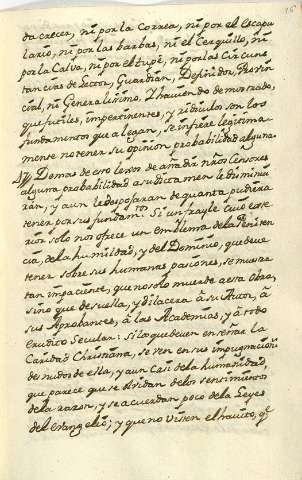 da crecer, ni por la Correa, ni por el Escapu
lario, ni por las barbas, ni el Cerquillo, ni
por la Calva, ni por el tupè, ni por las Circuns
tancias de Lector, Guardian, Definidor, Provin
cial, ni Generalisimo. Y haviendo demostrado,
que futiles, impertinentes, y ridiculos son los
fundamentos que alegan, se infiere legitima
mente no tener su opinion probabilidad alguna.
Demas de esto lexos de añadir nros Censores
alguna probabilidad a su dictamen le disminu
yràn, y aun le despojaràn de quanta pudiera
tener por sus fundam.tos Si un frayle cuio exte
rior solo nos ofrece un emblema de la Peniten
cia, de la humildad, y del Dominio, que deve
tener sobre sus humanas pasiones, se muestra
tan impaciente, que no solo muerde a esta Obra,
sino que desuella, y dilacera à su Autor, à
sus Aprobantes, à las Academias, y à todo
erudito Secular: Si los que deven enseñar la
Caridad Christiana, se ven en sus impugnacion.s
desnudos de ella, y aun casi de la humanidad,
que parece que se olvidan de los sentimientos
de la razon, y se acuerdan poco de las Leyes
del Evangelio; y que no visten el havito, q.e